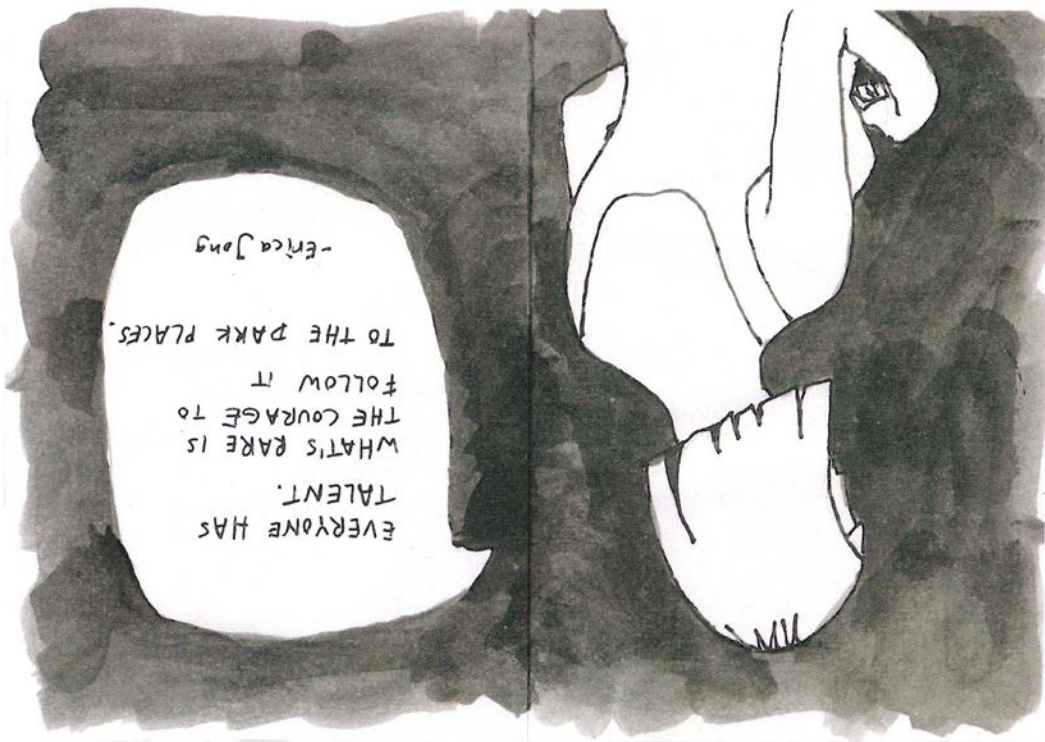 EVERYONE HAS
TALENT.
WHAT'S RARE IS
THE COURAGE TO
FOLLOW IT
TO THE DARK PLACES.
-Erica Jong